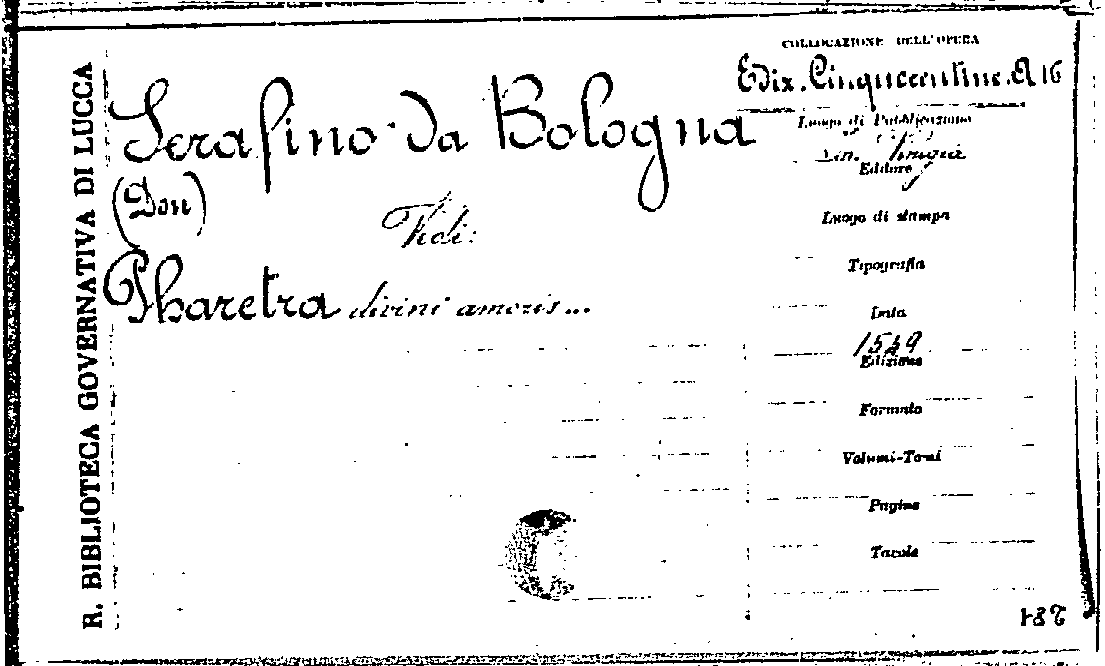 R. BIBLIOTECA GOVERNATIVA DI LUCCA
Serafino da Bologna
(Don)
Vedi:
Pharetra divini amoris...
COLLOCAZIONE DELL'OPERA
Ediz. Cinquecentine. A 16
Luogo di Pubblicazione
Editore
Luogo di stampa
Tipografia
Data
1549
Edizione
Formato
Volumi-Tomi
Pagine
Tavole